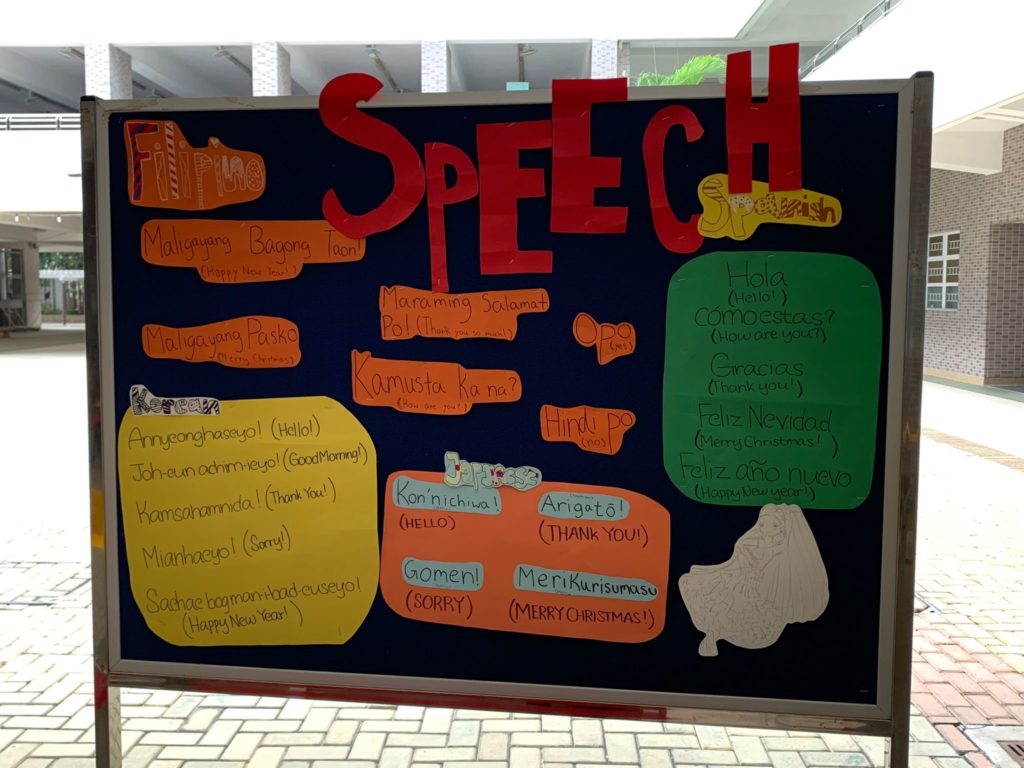 SPEECH
Filipino
Maligayang Bagong Taon!
(Happy New Year!)
Maligayang Pasko
(Merry Christmas)
Maraming Salamat
Po! (Thank you so much!)
Opo
(yes)
Kamusta ka na?
(How are you?)
Hindi po
(no)
Spanish
Hola
(Hello!)
Cómo estas?
(How are you?)
Gracias
(Thank you!)
Feliz Nevidad
(Merry Christmas!)
Feliz año nuevo
(Happy New year!)
Korean
Annyeonghaseyo! (Hello!)
Joh-eun achim-ieyo! (Good Morning!)
Kamsahamnida! (Thank You!)
Mianhaeyo! (Sorry!)
(Happy New Year!)
Japanese
Kon'nichiwa!
(HELLO)
Arigatō!
(THANK YOU!)
Gomen!
(SORRY)
MeriKurisumasu
(MERRY CHRISTMAS!)